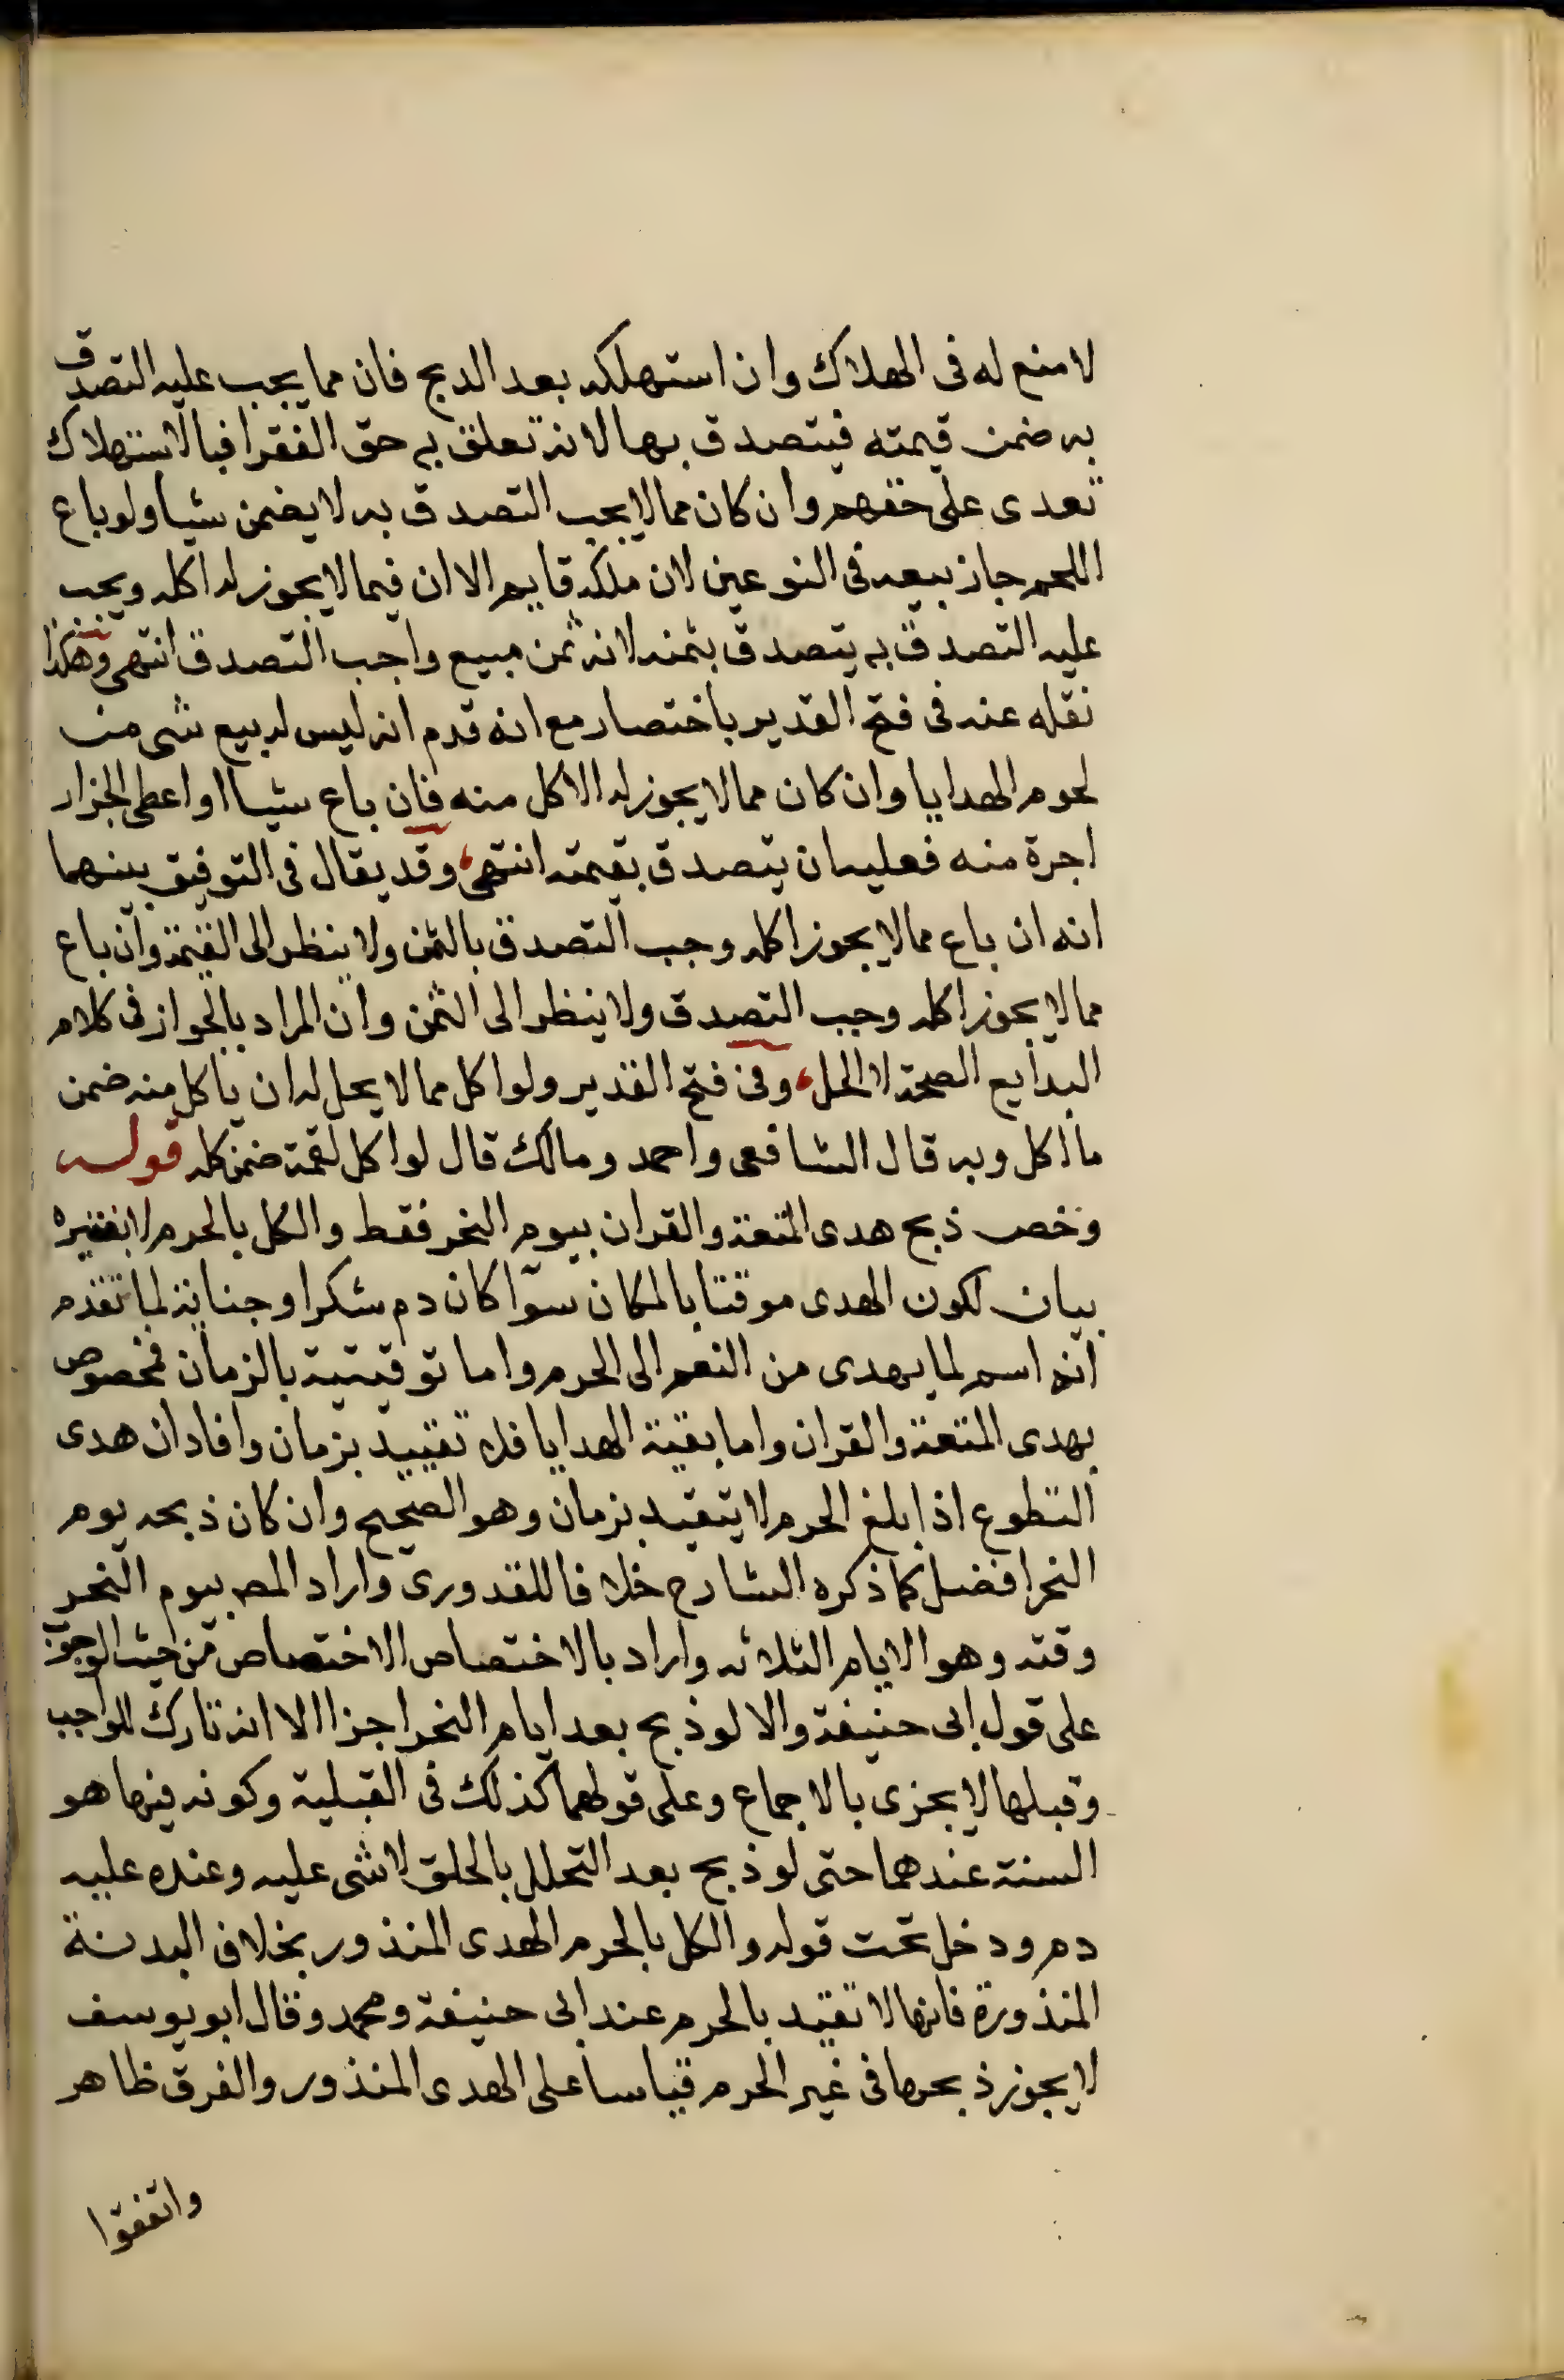 لا منع له فى الهلاك وان استهلكه بعد الدبح فان مما يجب عليه التصدق
به ضمن قيمته فيتصدق بها لانه تعلق به حق الفقرا فبالاستهلاك
تعدى على حقهم وان كان مما لا يجب التصدق به لا يضمن شيا ولو باع
اللحم جاز بيعه فى النوعين لان ملكه قايم الا ان فيما لا يجوز له اكله ويجب
عليه التصدق به يتصدق بثمنه لانه ثمن مبيع واجب التصدق انتهى وهكذا
نقله عنه فى فتح القدير باختصار مع انه قدم انه ليس له بيع شى من
لحوم الهدايا وان كان مما لا يجوز له الاكل منه فان باع شيا او اعطى الجزار
اجرة منه فعليه ان يتصدق بقيمته انتهى وقد يقال فى التوفيق بينهما
انه ان باع مما لا يجوز اكله وجب التصدق بالثمن ولا ينظر الى القيمة وان باع
مما لا يجوز اكله وجب التصدق ولا ينظر الى الثمن وان المراد بالجواز فى كلام
البدايع الصحة لا الحل وفى فتح القدير ولو اكل مما لا يحل له ان ياكل منه ضمن
ما اكل وبه قال الشافعى واحمد ومالك قال لو اكل لقمة ضمن كله قوله
وخص ذبح هدى المتعة والقران بيوم النحر فقط والكل بالحرم لا بفقيره
بيان لكون الهدى موقتا بالمكان سوآ كان دم شكر او جناية لما تقدم
انه اسم لما يهدى من النعم الى الحرم واما توقيتية بالزمان فمخصوص
بهدى المتعة والقران واما بقية الهدايا فلا تقييد بزمان وافاد ان هدى
التطوع اذا بلغ الحرم لا يتقيد بزمان وهو الصحيح وان كان ذبحه يوم
النحر افضل كما ذكره الشارح خلافا للقدورى واراد المص بيوم النحر
وقته وهو الايام الثلاثه واراد بالاختصاص الاختصاص من حيث الوجوب
على قول ابى حنيفة والا لو ذبح بعد ايام النحر اجزا الا انه تارك للواجب
وقبلها لا يجزى بالاجماع وعلى قولهما كذلك فى القبلية وكونه فيها هو
السنة عندهما حتى لو ذبح بعد التحلل بالحلق لا شى عليه وعنده عليه
دم ودخل تحت قوله والكل بالحرم الهدى المنذور بخلاف البدنة
المنذورة فانها لا تقيد بالحرم عند ابى حنيفة ومحمد وقال ابو يوسف
لا يجوز ذبحها فى غير الحرم قياسا على الهدى المنذور والفرق ظاهر
واتفقوا